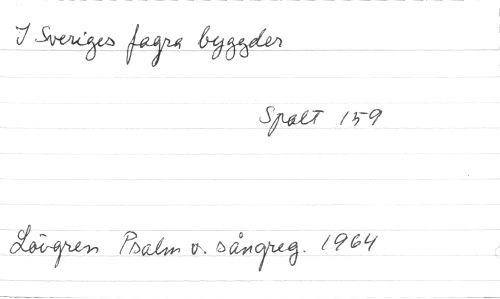 I Sveriges fagra byggder
Spalt 159
Lövgren Psalm o. sångreg. 1964